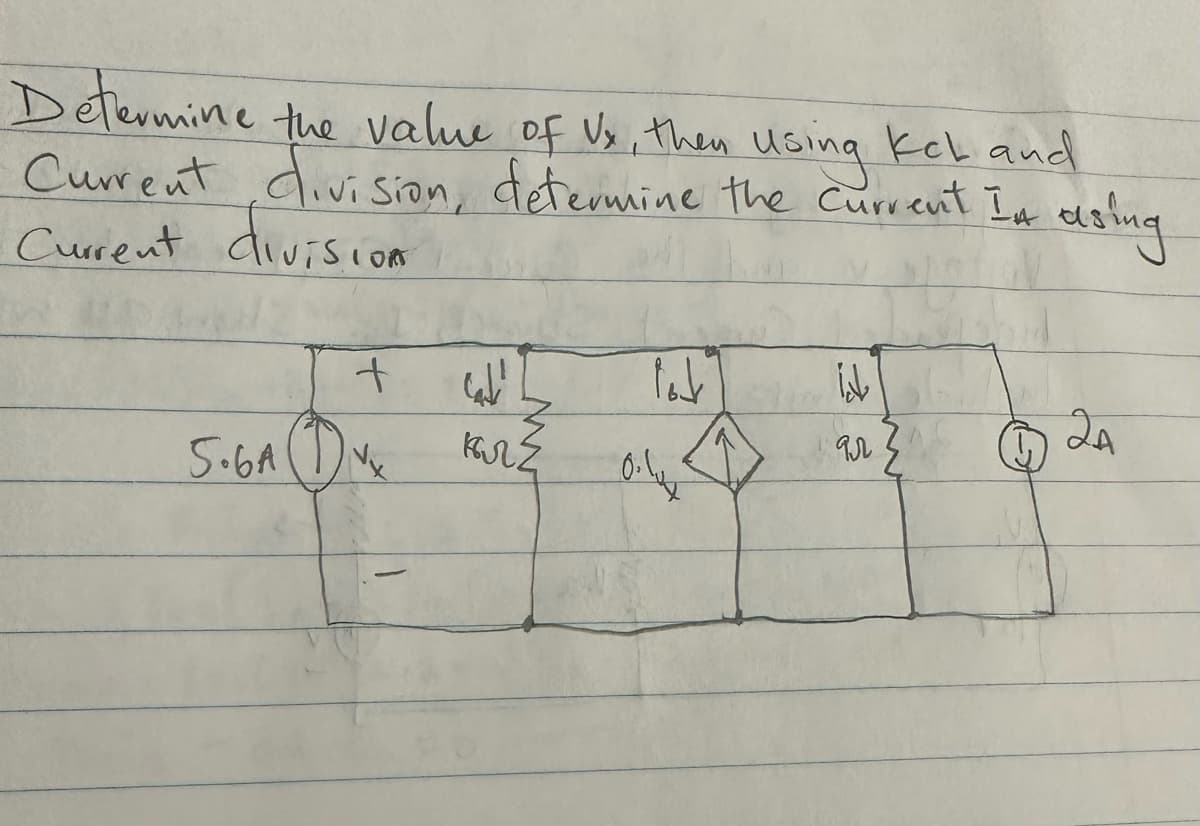 Determine the value of Vx, then using KCL and
Current division, determine the current IA using
Current division
+
5.6A
Vx
18Ω
0.1vx
9Ω
2A
-